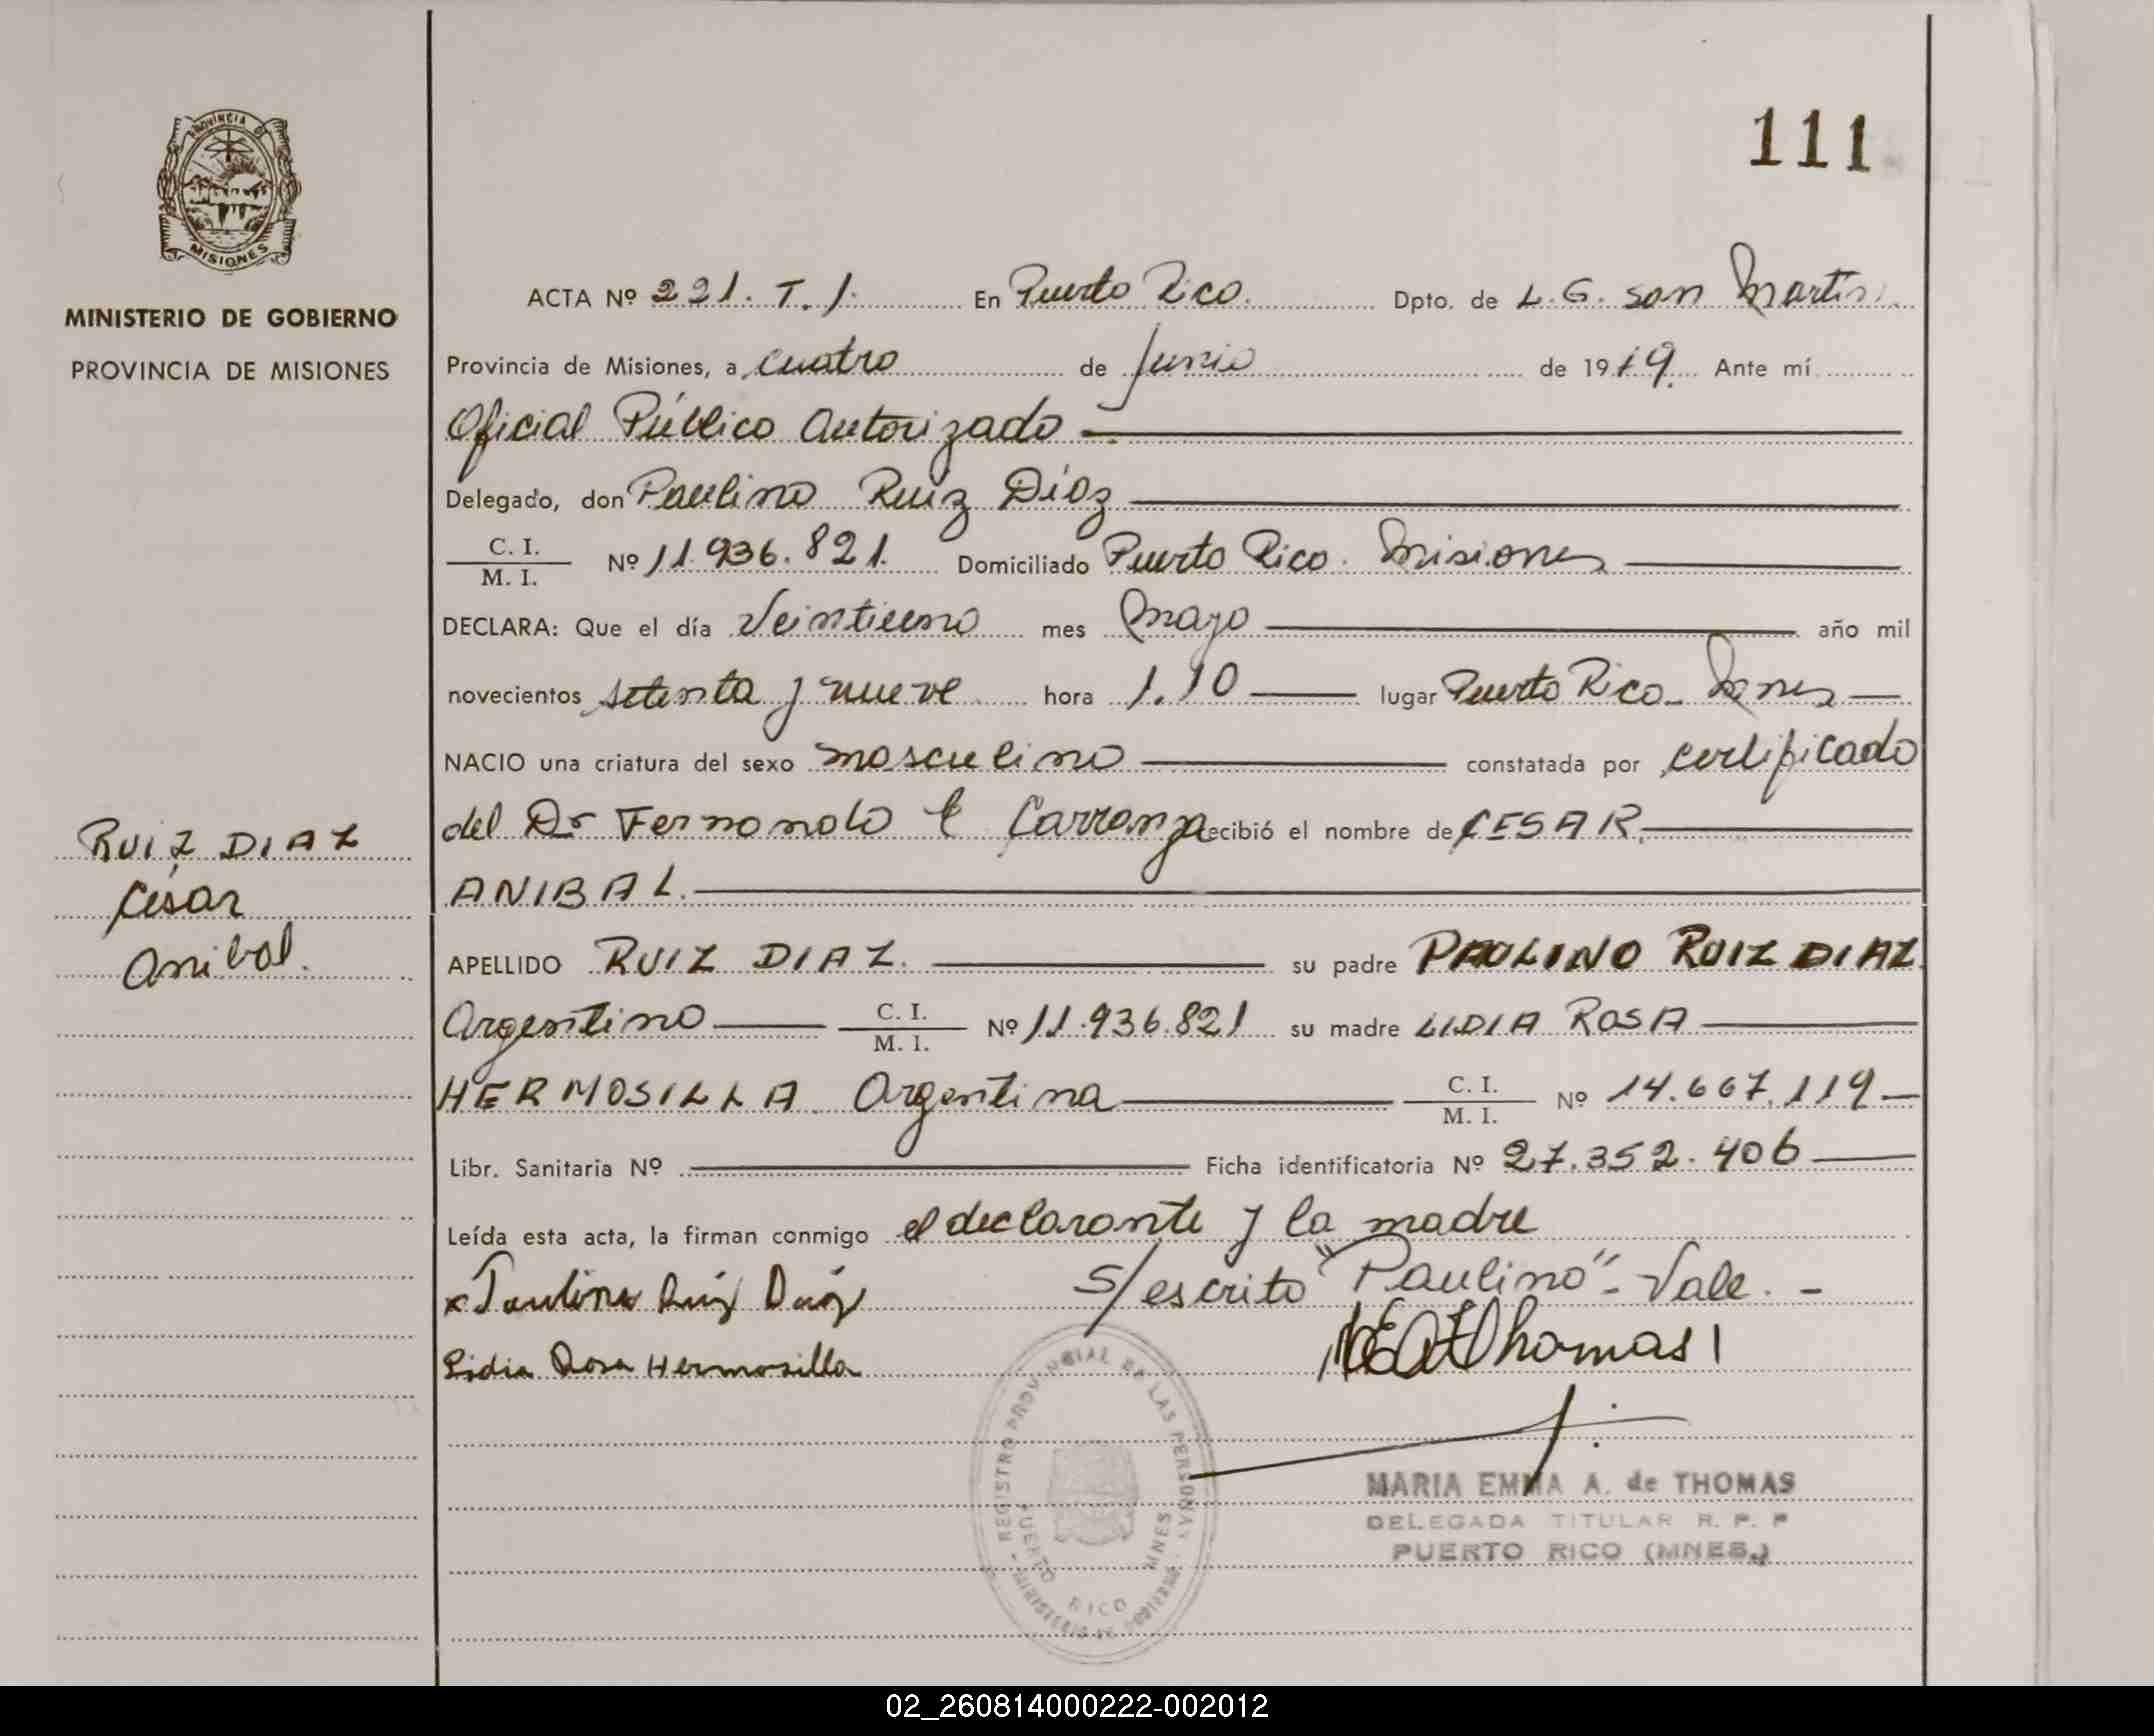 111
PROVINCIA DE
MISIONES
MINISTERIO DE GOBIERNO
PROVINCIA DE MISIONES
RUIZ DIAZ
César
Anibal.
ACTA Nº 221. T. I. En Puerto Rico. Dpto. de L. G. San Martín.
Provincia de Misiones, a cuatro de Junio de 1979. Ante mí
Oficial Público Autorizado
Delegado, don Paulino Ruiz Díaz
C. I. / M. I. Nº 11.936.821. Domiciliado Puerto Rico. Misiones
DECLARA: Que el día Veintiuno mes Mayo año mil
novecientos setenta y nueve hora 1.10 lugar Puerto Rico - Mnes
NACIO una criatura del sexo masculino constatada por certificado
del Dr Fernando E Carranza recibió el nombre de CESAR
ANIBAL.
APELLIDO RUIZ DIAZ. su padre PAULINO RUIZ DIAZ
Argentino C. I. / M. I. Nº 11.936.821 su madre LIDIA ROSA
HERMOSILLA Argentina C. I. / M. I. Nº 14.667.119
Libr. Sanitaria Nº Ficha identificatoria Nº 27.352.406
Leída esta acta, la firman conmigo el declarante y la madre
x Paulino Ruiz Diaz S/escrito "Paulino" - Vale. -
Lidia Rosa Hermosilla Thomas
REGISTRO PROVINCIAL DE LAS PERSONAS
PUERTO RICO MNES
MINISTERIO DE GOBIERNO
MARIA EMMA A. de THOMAS
DELEGADA TITULAR R. P. P
PUERTO RICO (MNES.)
02_260814000222-002012